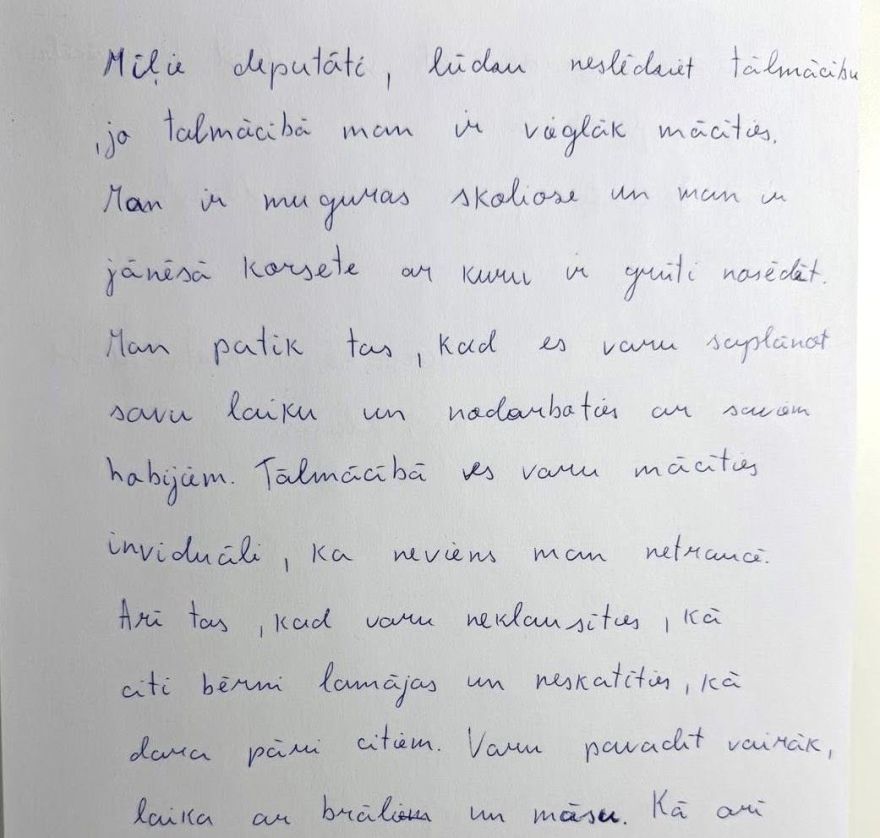 Mīļie deputāti, lūdzu neslēdziet tālmācību
,jo talmācībā man ir vieglāk mācīties.
Man ir muguras skolioze un man ir
jānēsā korsete ar kuru ir grūti nosēdēt.
Man patīk tas, kad es varu saplānot
savu laiku un nodarboties ar saviem
habijiem. Tālmācībā es varu mācīties
inviduāli, ka neviens man netraucē.
Arī tas, kad varu neklausīties, kā
citi bērni lamājas un neskatīties, kā
dara pāri citiem. Varu pavadīt vairāk,
laika ar brāli un māsu. Kā arī